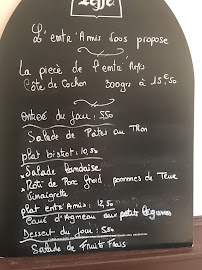 Leffe
L'entr'Amis vous propose
La pièce de l'entr'Amis
Côte de Cochon 300grs à 15€,50
Entrée du Jour : 5,50
Salade de Pâtes au Thon
plat bistrot : 10,50
Salade Landaise
Roti de Porc froid pommes de Terre
Vinaigrette
plat entr'amis : 12,50
Carré d'Agneau aux petits légumes
Dessert du Jour : 5,50
Salade de Fruits Frais